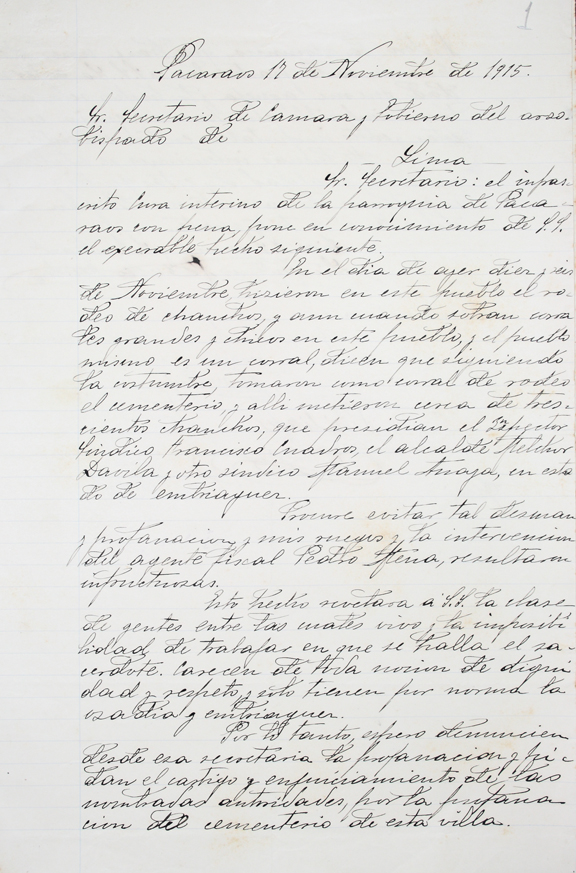 1
Pacaraos 17 de Noviembre de 1915.
Sr. Secretario de Camara y Gobierno del arzo-
bispado de
Lima
Sr. Secretario: el infras-
crito Cura interino de la parroquia de Paca-
raos con pena, pone en conocimiento de S.S.
el execrable hecho siguiente
En el dia de ayer diez y seis
de Noviembre hizieron en este pueblo el ro-
deo de chanchos, y aun cuando sobran corra
les grandes y chicos en este pueblo, y el pueblo
mismo es un corral, dicen que siguiendo
la costumbre, tomaron como corral de rodeo
el cementerio, y alli metieron cerca de tres-
cientos chanchos, que presidian el
Sindico, Francisco Cuadros, el alcalde Melchor
Davila y otro sindico Manuel, en esta
do de embriaguez.
Procure evitar tal desman
y profanacion, y mis ruegos y la intervencion
del agente fiscal Pedro Mena, resultaron
infructuosas.
Este hecho revelara a S.S. la clase
de gentes entre las cuales vivo y la imposibi
lidad de trabajar en que se halla el sa-
cerdote. Carecen de toda nocion de digni
dad y respeto, y solo tienen por norma la
osadia y embriaguez.
Por lo tanto, espero denuncien
desde esa secretaria la profanacion y pi-
dan el castigo y enjuiciamiento de las
nombradas autoridades, por la profana
cion del cementerio de esta villa.